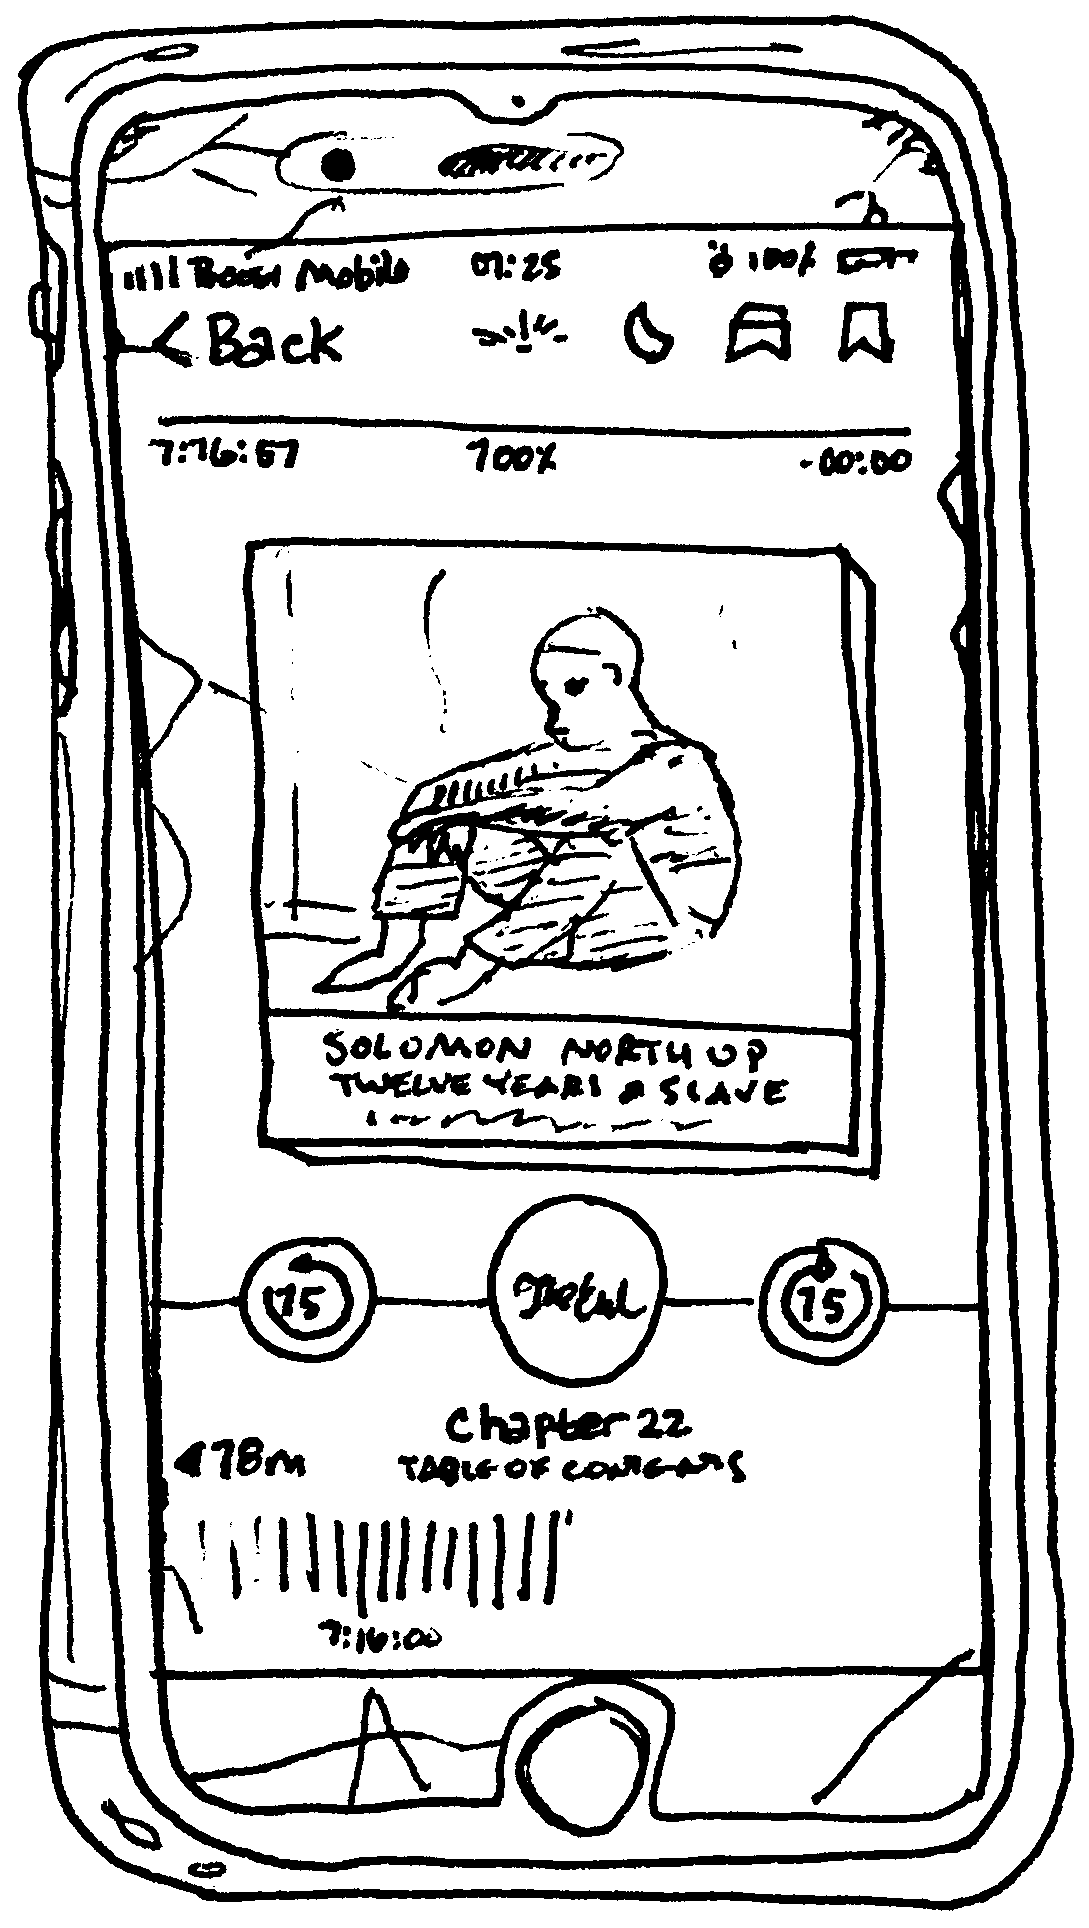 Boost Mobile 01:25 100%
< Back
7:16:57 100% -00:00
SOLOMON NORTHUP
TWELVE YEARS A SLAVE
15 15
Chapter 22
TABLE OF CONTENTS
78m
7:16:00